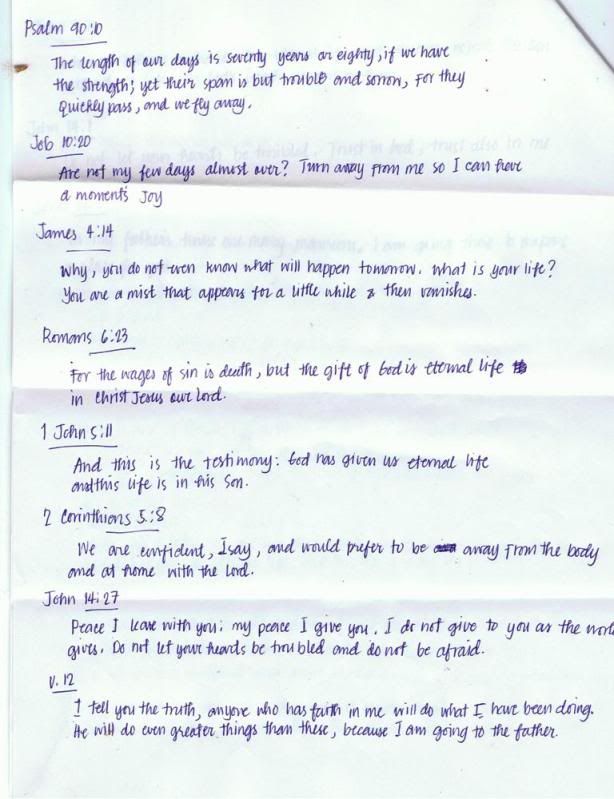 Psalm 90:10
The length of our days is seventy years or eighty, if we have
the strength; yet their span is but trouble and sorrow, For they
Quickly pass, and we fly away.
Job 10:20
Are not my few days almost over? Turn away From me so I can have
a moment's Joy
James 4:14
Why, you do not even know what will happen tomorrow. What is your life?
You are a mist that appears for a little while & then vanishes.
Romans 6:23
For the wages of sin is death, but the gift of God is eternal life
in Christ Jesus our Lord.
1 John 5:11
And this is the testimony: God has given us eternal life
and this life is in his Son.
2 Corinthians 5:8
We are confident, I say, and would prefer to be away From the body
and at home with the Lord.
John 14:27
Peace I leave with you; my peace I give you. I do not give to you as the worl
gives. Do not let your hearts be troubled and do not be afraid.
v. 12
I tell you the truth, anyone who has faith in me will do what I have been doing.
He will do even greater things than these, because I am going to the father.